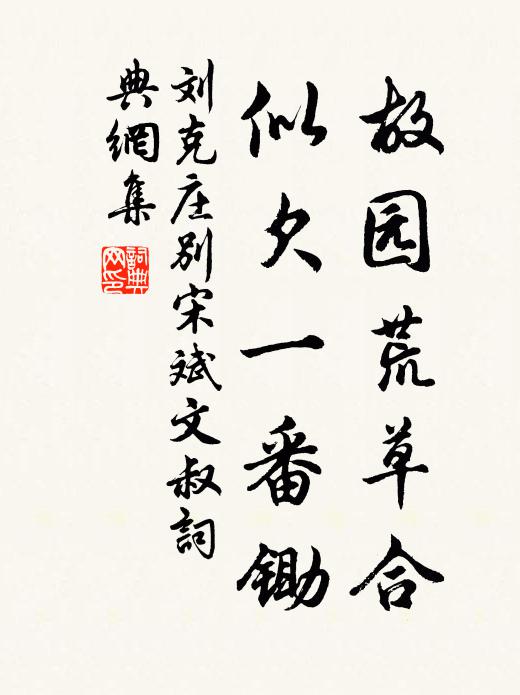 故园荒草合
似欠一番锄
刘克庄别宋斌文叔詞
典網集
詞典
网印